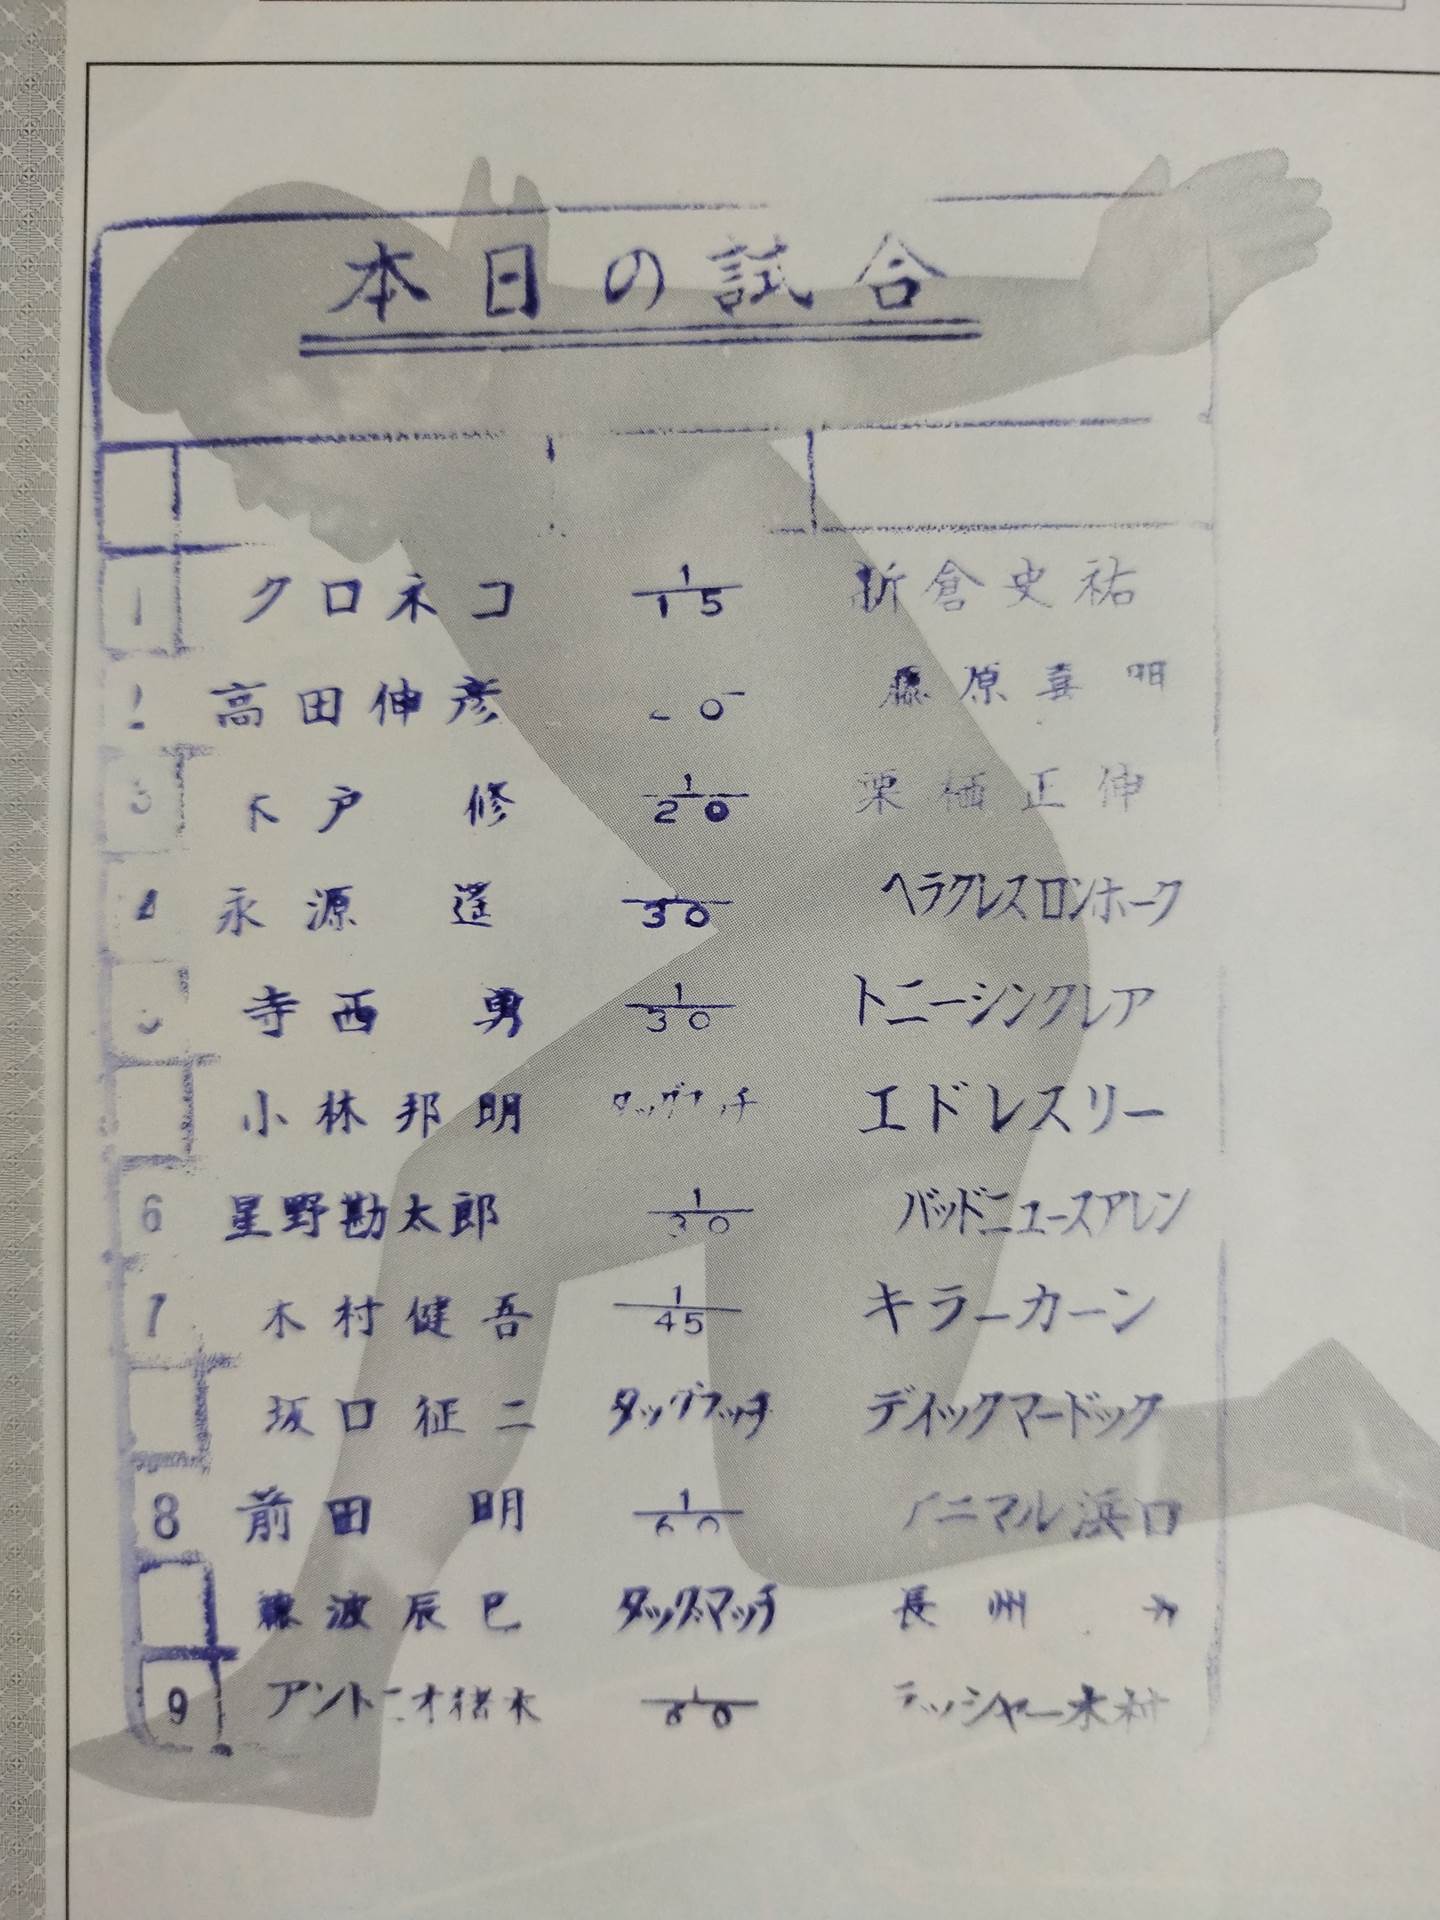 本日の試合
1 クロネコ 1/15 折倉史祐
高田伸彦 藤原喜明
木戸 修 1/20 栗栖正伸
4 永源 遥 1/30 ヘラクレスロンホーク
寺西 勇 1/30 トニーシンクレア
小林邦明 タッグマッチ エドレスリー
6 星野勘太郎 1/30 バッドニュースアレン
7 木村健吾 1/45 キラーカーン
坂口征二 タッグマッチ ディックマードック
8 前田 明 1/60 アニマル浜口
藤波辰巳 タッグマッチ 長州 力
9 アントニオ猪木 1/60 ラッシャー木村